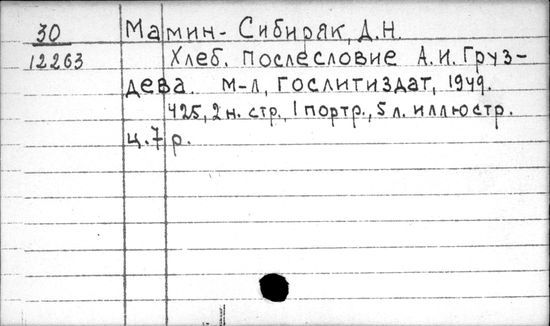 30 Мамин-Сибиряк, Д.Н.
12263 Хлеб. Послесловие А.И. Груз-
дева. М-Л, Гослитиздат, 1949.
425, 2 н. стр., 1 портр., 5 л. иллюстр.
ц. 7 р.